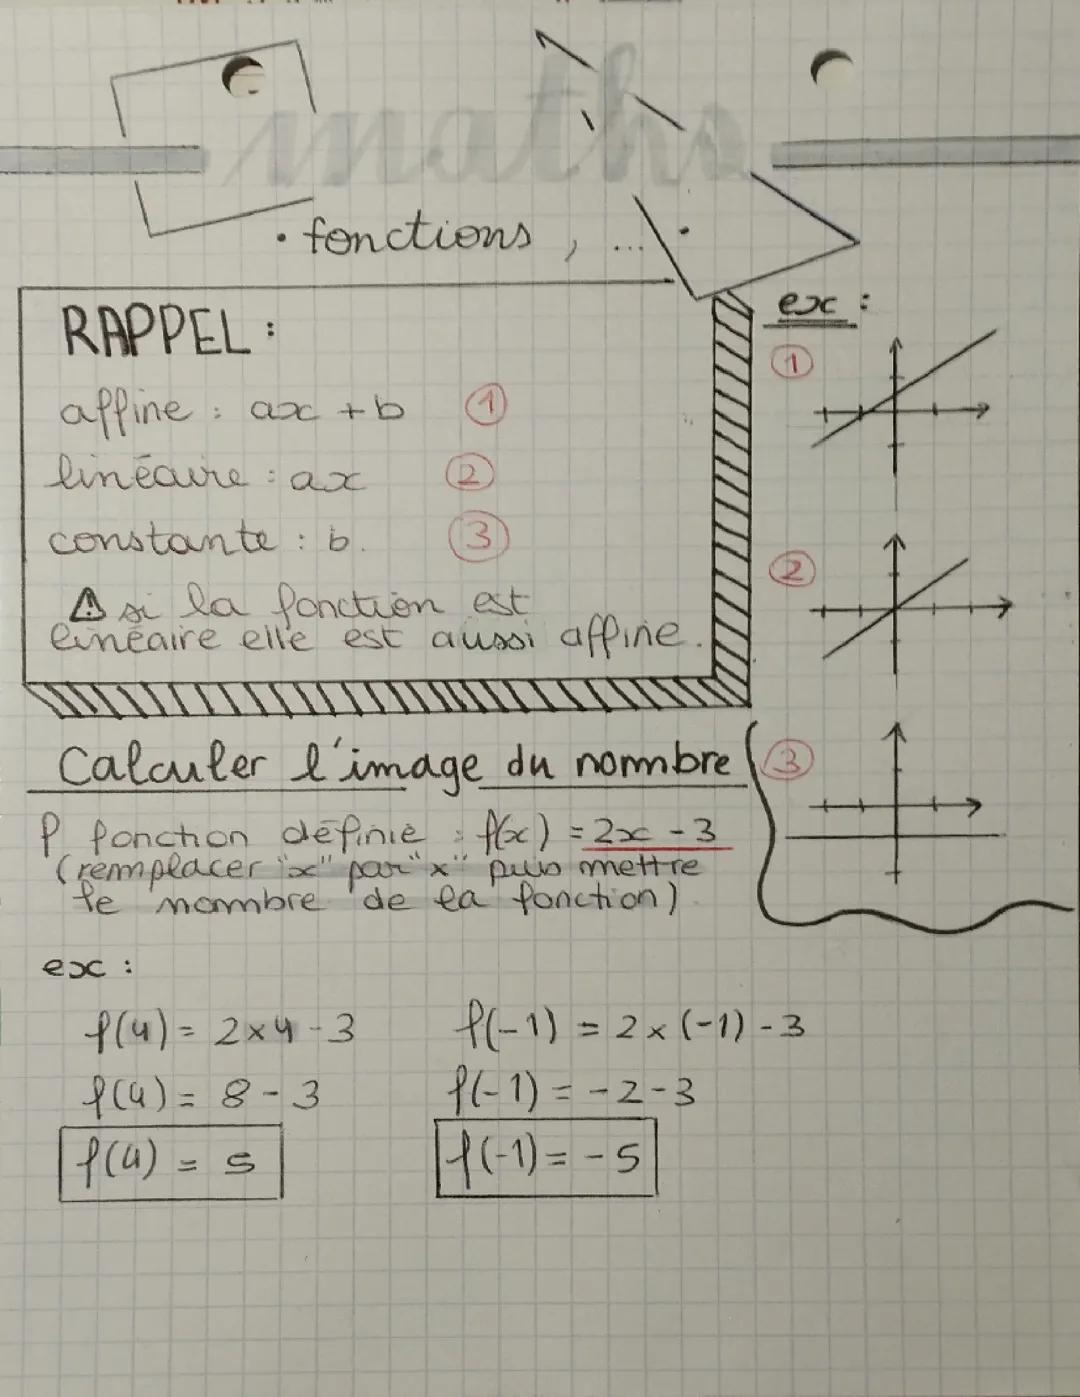 maths
• fonctions, ...
RAPPEL :
affine : ax + b ①
linéaire : ax ②
constante : b. ③
⚠ si la fonction est
linéaire elle est aussi affine.
ex :
①
②
③
Calculer l'image du nombre
f fonction définie : f(x) = 2x - 3
(remplacer "x" par "×" puis mettre
le nombre de la fonction)
ex :
f(4) = 2×4 - 3
f(4) = 8 - 3
f(4) = 5
f(-1) = 2×(-1) - 3
f(-1) = -2 - 3
f(-1) = -5